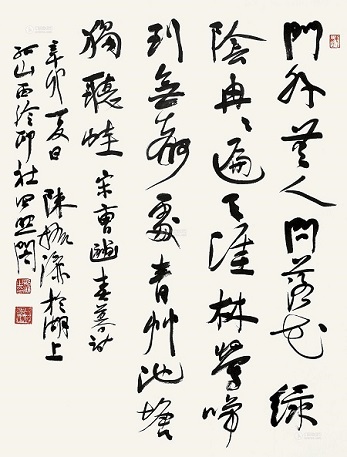 門外無人問落花綠
陰冉冉遍天涯林鶯啼
到無聲處青艸池塘
獨聽蛙 宋曹豳春暮詩
辛卯夏日 陳振濂於湖上
孤山西泠印社四照閣